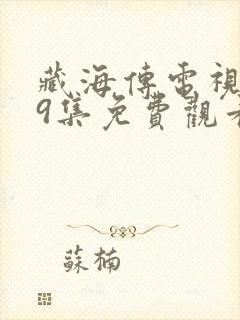 藏海傳電視
9集免費觀看
蘇楠